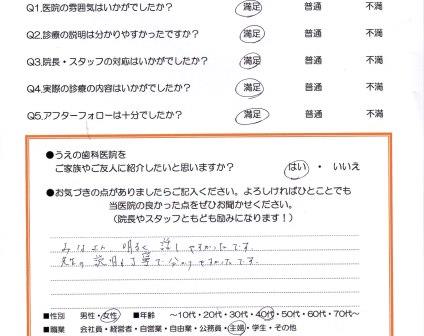 Q1.医院の雰囲気はいかがでしたか？ 満足 普通 不満
Q2.診療の説明は分かりやすかったですか？ 満足 普通 不満
Q3.院長・スタッフの対応はいかがでしたか？ 満足 普通 不満
Q4.実際の診療の内容はいかがでしたか？ 満足 普通 不満
Q5.アフターフォローは十分でしたか？ 満足 普通 不満
●うえの歯科医院を
ご家族やご友人に紹介したいと思いますか？ はい ・ いいえ
●お気づきの点がありましたらご記入ください。よろしければひとことでも
当医院の良かった点をぜひお聞かせください。
（院長やスタッフともども励みになります！）
みなさん 明るく 話しやすかったです。
先生の説明も丁寧で分かりやすかったです。
■性別 男性・女性 ■年齢 〜10代・20代・30代・40代・50代・60代・70代〜
■職業 会社員・経営者・自営業・自由業・公務員・主婦・学生・その他